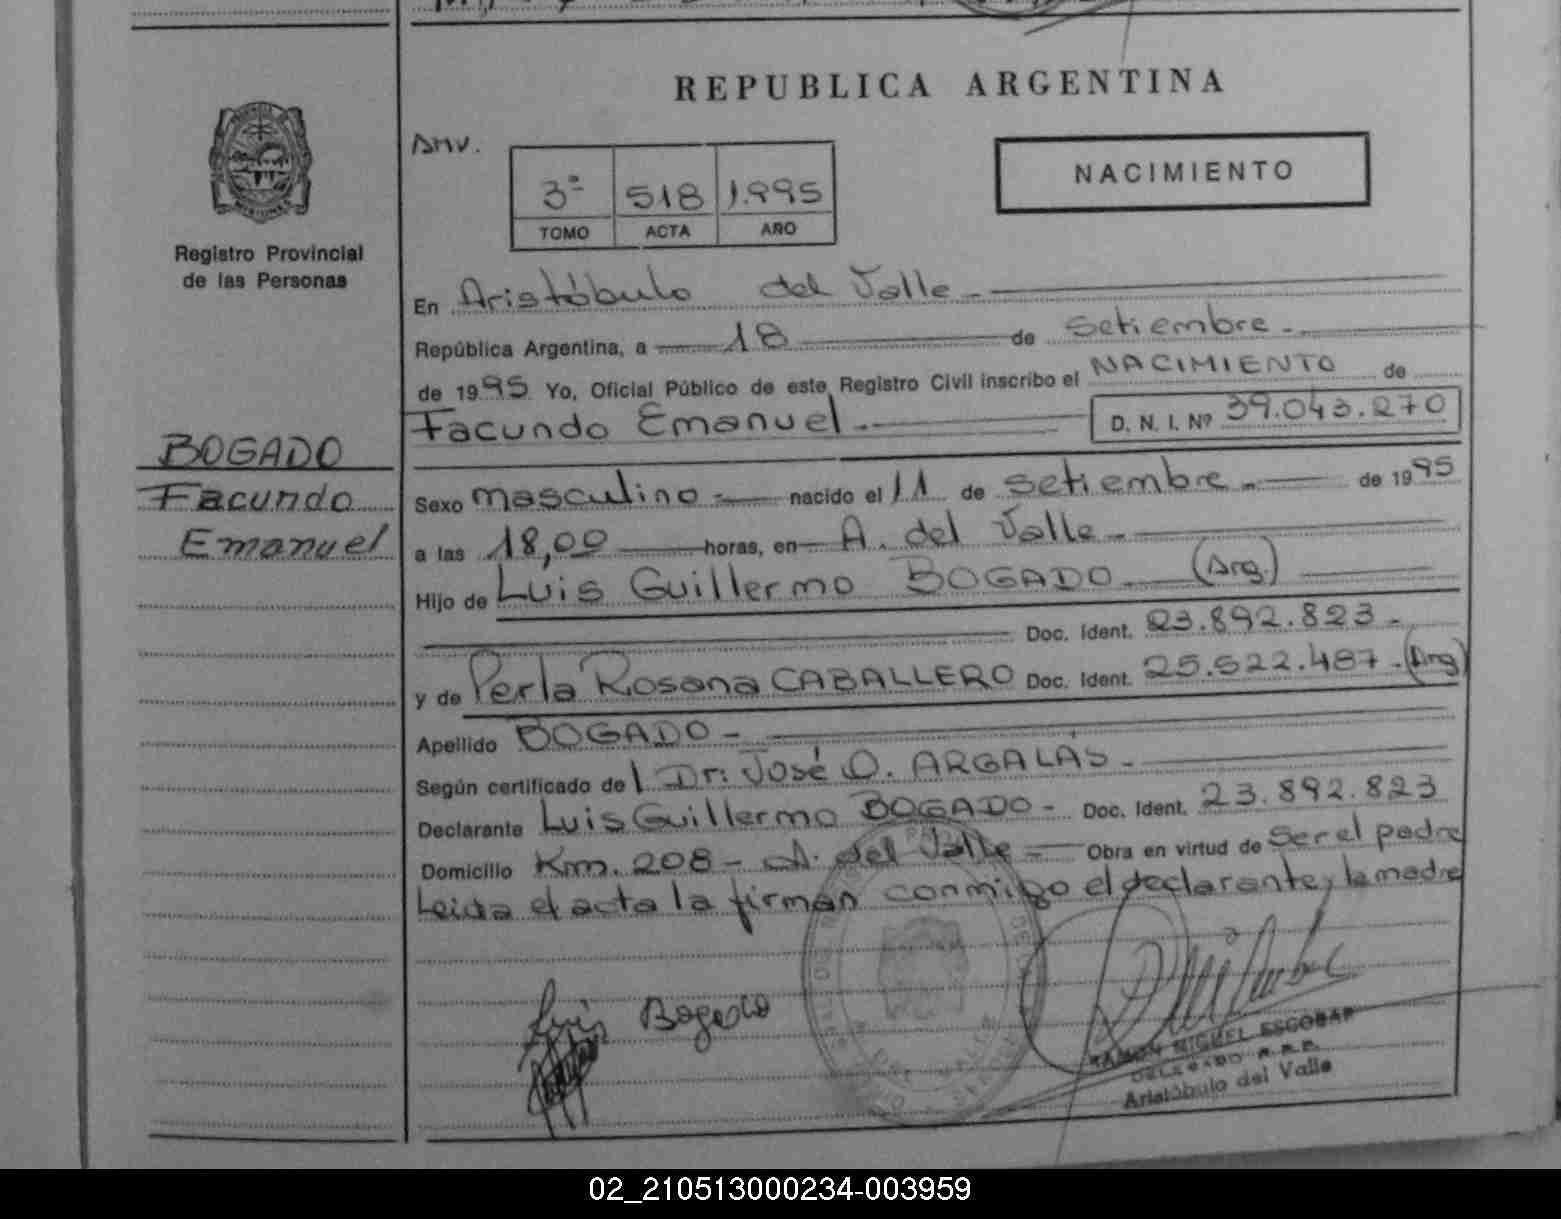 REPUBLICA ARGENTINA
Anv.
3º 518 1.995
TOMO ACTA AÑO
NACIMIENTO
Registro Provincial
de las Personas
BOGADO
Facundo
Emanuel
En Aristóbulo del Valle.-
República Argentina, a 18 de Setiembre.-
de 1995 Yo, Oficial Público de este Registro Civil inscribo el NACIMIENTO de
Facundo Emanuel.- D. N. I. Nº 39.043.270
Sexo masculino.- nacido el 11 de Setiembre.- de 1995
a las 18,00 horas, en A. del Valle.-
Hijo de Luis Guillermo BOGADO (Arg.)
Doc. Ident. 23.892.823.-
y de Perla Rosana CABALLERO Doc. Ident. 25.522.487.-(Arg)
Apellido BOGADO.-
Según certificado de l Dr: José O. ARGALÁS.-
Declarante Luis Guillermo BOGADO- Doc. Ident. 23.892.823
Domicilio Km. 208- A. del Valle.- Obra en virtud de Ser el padre
Leida el acta la firman conmigo el declarante y la madre
Luis Bogado
RAMON MIGUEL ESCOBAR
DELEGADO R.R.P.
Aristóbulo del Valle
02_210513000234-003959